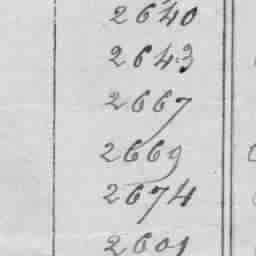 2640
2643
2667
2669
2674